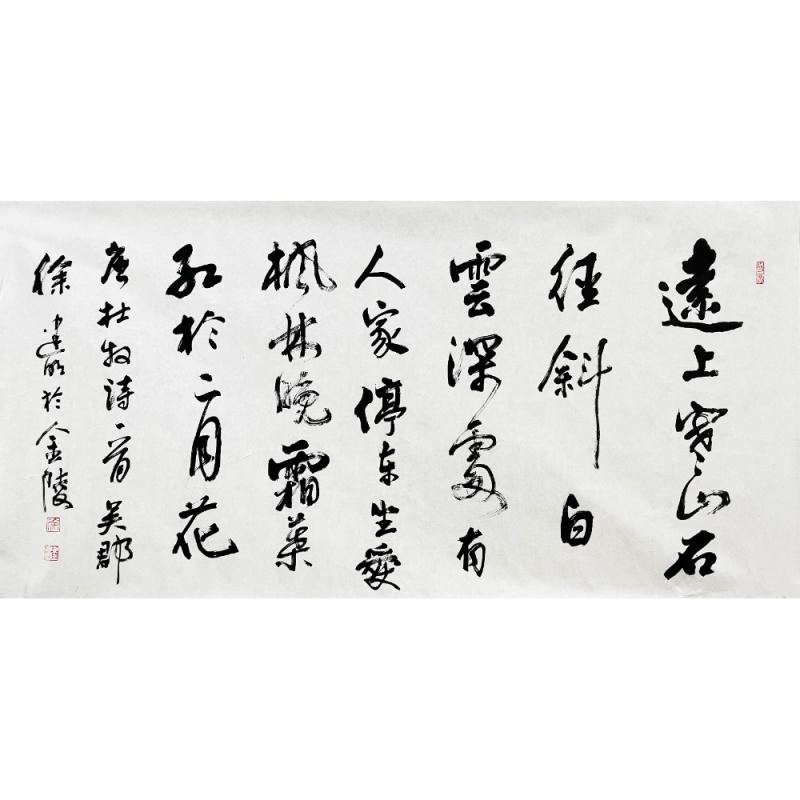 遠上寒山石
徑斜白
雲深處有
人家停車坐愛
楓林晚霜葉
紅於二月花
唐杜牧詩一首吳郡
徐建明於金陵